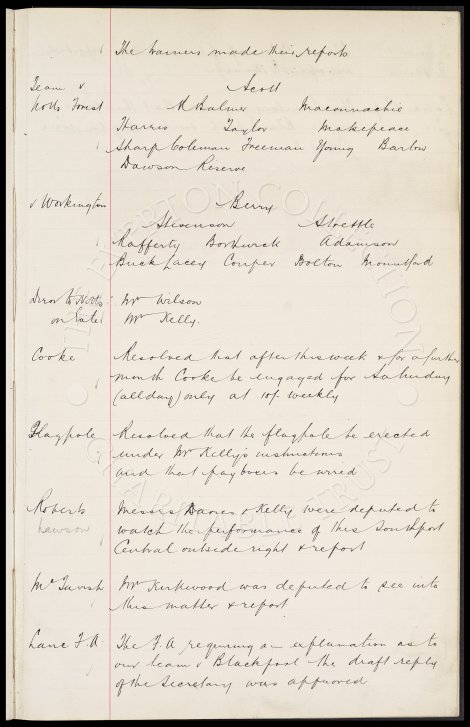 The Trainers made their reports
Team v Scott
Notts Forest R Balmer Maconnachie
Harris Taylor Makepeace
Sharp Coleman Freeman Young Barlow
Dawson Reserve
v Workington Berry
Stevenson Strettle
Rafferty Borthwick Adamson
Buck Lacey Couper Bolton Mountford
Direr to Notts Mr Wilson
on Gate Mr Kelly.
Cooke Resolved that after this week & for a further
month Cooke be engaged for Saturday
(all day) only at 10/- weekly
Flagpole Resolved that the flagpole be erected
under Mr Kelly's instructions
and that pay boxes be wired
Roberts Messrs Davies & Kelly were deputed to
Lawson watch the performance of this Southport
Central outside right & report
McTavish Mr Kirkwood was deputed to see into
this matter & report
Lanc F.A. The F.A requiring an explanation as to
our team v Blackpool the draft reply
of the Secretary was approved
EVERTON COLLECTION
CHARITABLE TRUST